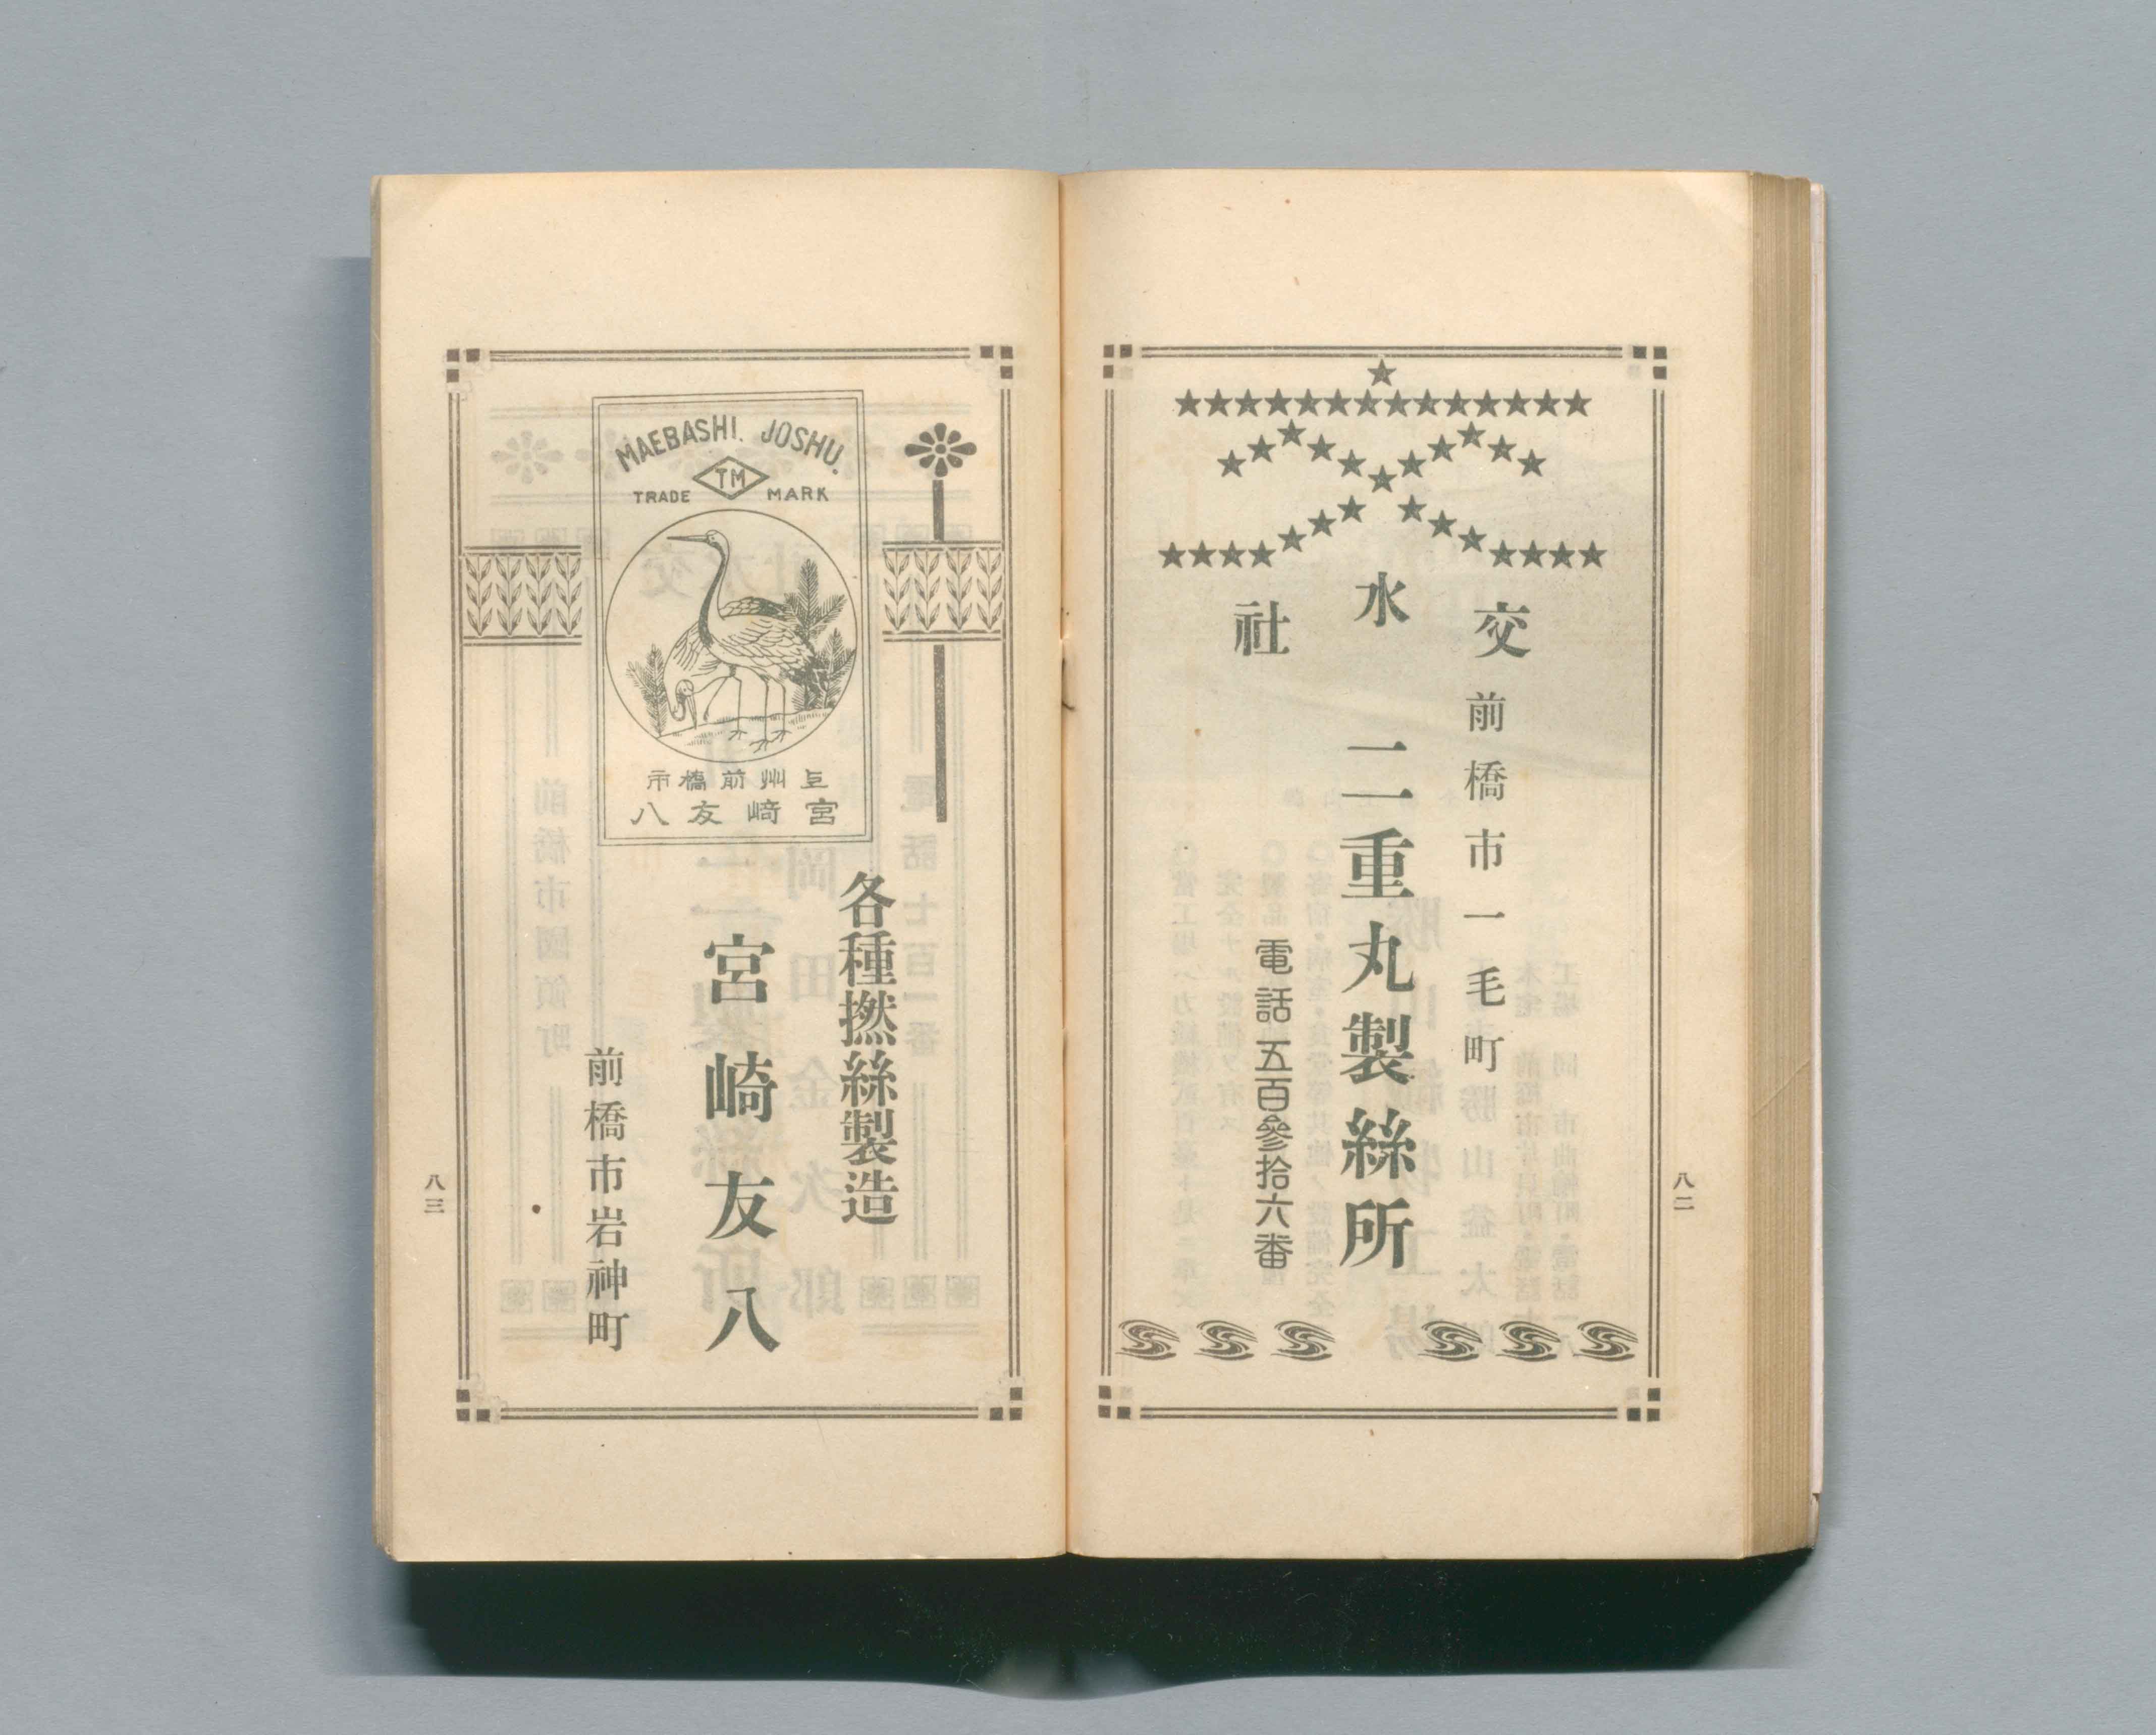 交水社
前橋市一毛町
二重丸製絲所
電話五百參拾六番
八二
MAEBASHI. JOSHU.
TM
TRADE MARK
上州前橋市
宮﨑友八
各種撚絲製造
宮崎友八
前橋市岩神町
八三